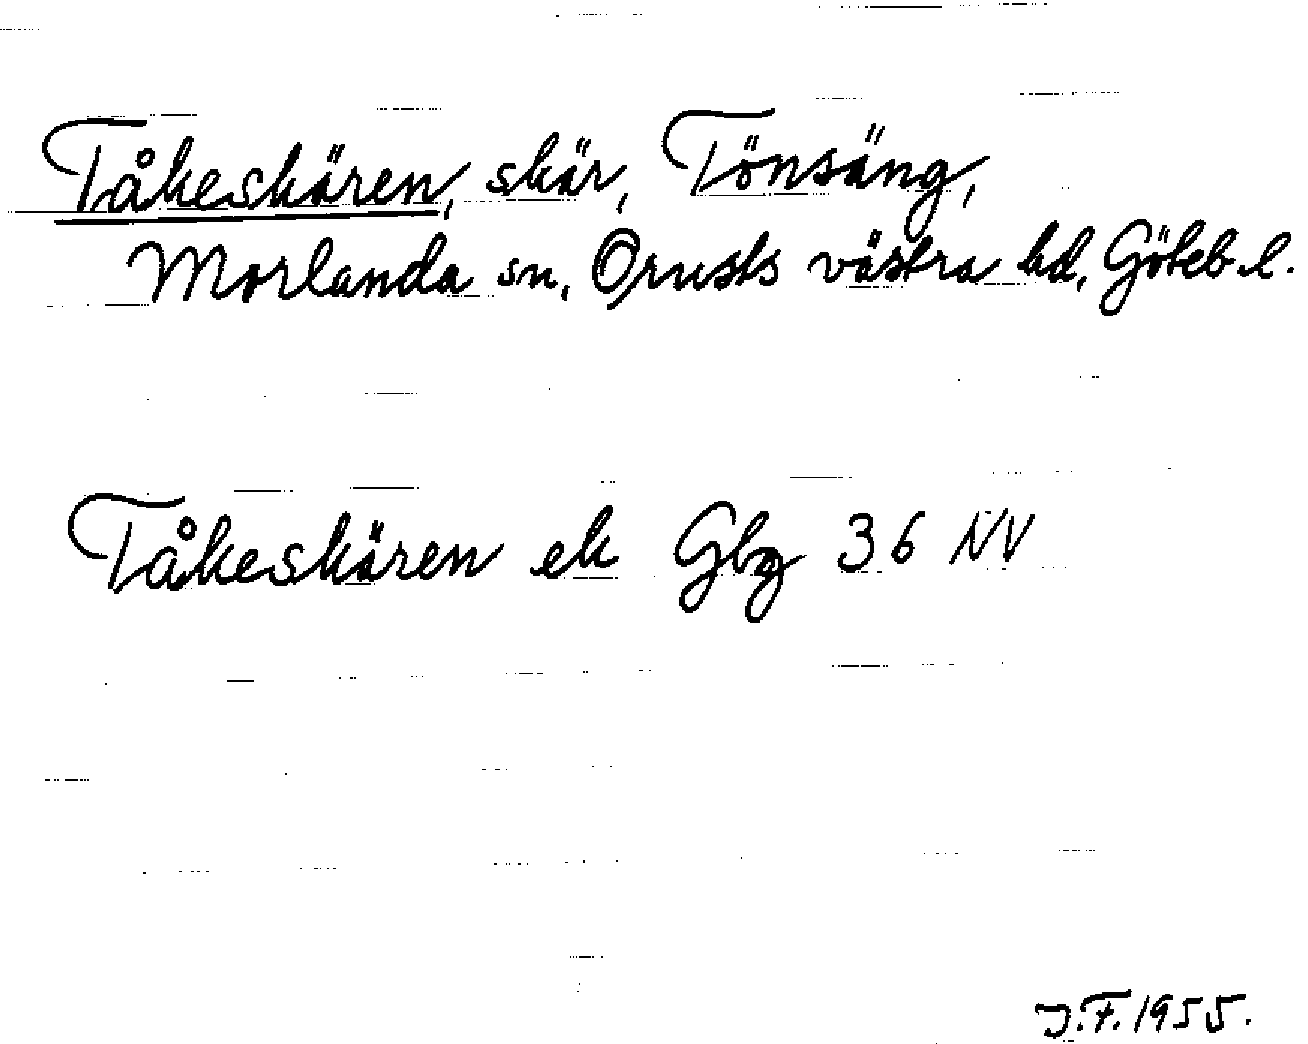 Tåkeskären, skär, Tönsäng,
Morlanda sn, Orusts västra hd, Göteb. l.
Tåkeskären ek Gbg 36 NV
J.F. 1955.